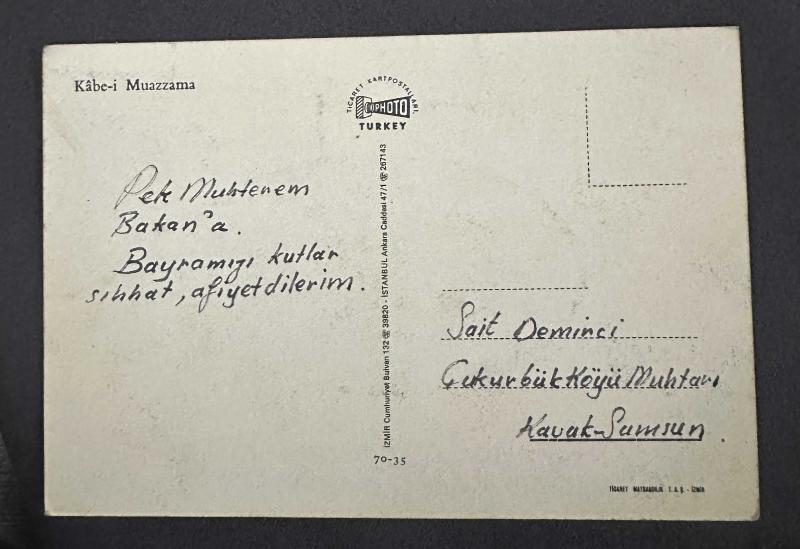 Kâbe-i Muazzama
TİCARET KARTPOSTALLARI
PHOTO
TURKEY
Pek Muhterem
Bakan'a.
Bayramıyı kutlar
sıhhat, afiyet dilerim.
İZMİR Cumhuriyet Bulvarı 132 ☎ 39820 - İSTANBUL Ankara Caddesi 47/1 ☎ 267143
Sait Demirci
Çukurbük Köyü Muhtarı
Kavak-Samsun.
70-35
TİCARET MATBAACILIK T.A.Ş. - İZMİR